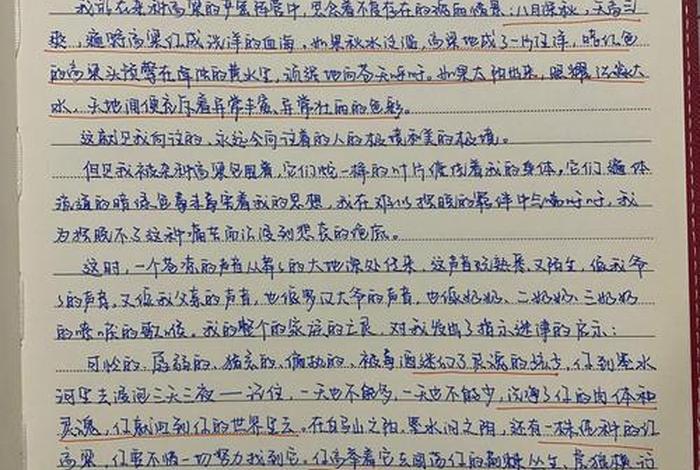 我站在杂种高粱的严密阵营中，思念着不复存在的瑰丽情景：八月深秋，天高气
爽，遍野高粱红成洸洋的血海。如果秋水泛滥，高粱地成了一片汪洋，暗红色
的高粱头颅擎在浑浊的黄水里，顽强地向苍天呼吁。如果太阳出来，照耀浩淼大
水，天地间便充斥着异常丰富、异常壮丽的色彩。
这就是我向往的、永远会向往着的人的极境和美的极境。
但是我被杂种高粱包围着，它们蛇一样的叶片缠绕着我的身体，它们遍体
流通的暗绿色毒素毒害着我的思想，我在难以摆脱的羁绊中气喘吁吁，我
为摆脱不了这种痛苦而沉浸到悲哀的绝底。
这时，一个苍凉的声音从莽莽的大地深处传来，这声音既熟悉，又陌生，像我爷
爷的声音，又像我父亲的声音，也像罗汉大爷的声音，也像奶奶、二奶奶、三奶奶
的嘹喉的歌喉。我的整个的家族的亡灵，对我发出了指示迷津的启示：
可怜的、孱弱的、猜忌的、偏执的、被毒酒迷幻了灵魂的孩子，你到墨水
河里去浸泡三天三夜——记住，一天也不能多，一天也不能少，洗净了你的肉体和
灵魂，你就回到你的世界里去。在白马山之阳，墨水河之阴，还有一株纯种的红
高粱，你要不惜一切努力找到它。你高举着它去闯荡你的荆棘丛生、虎狼横行